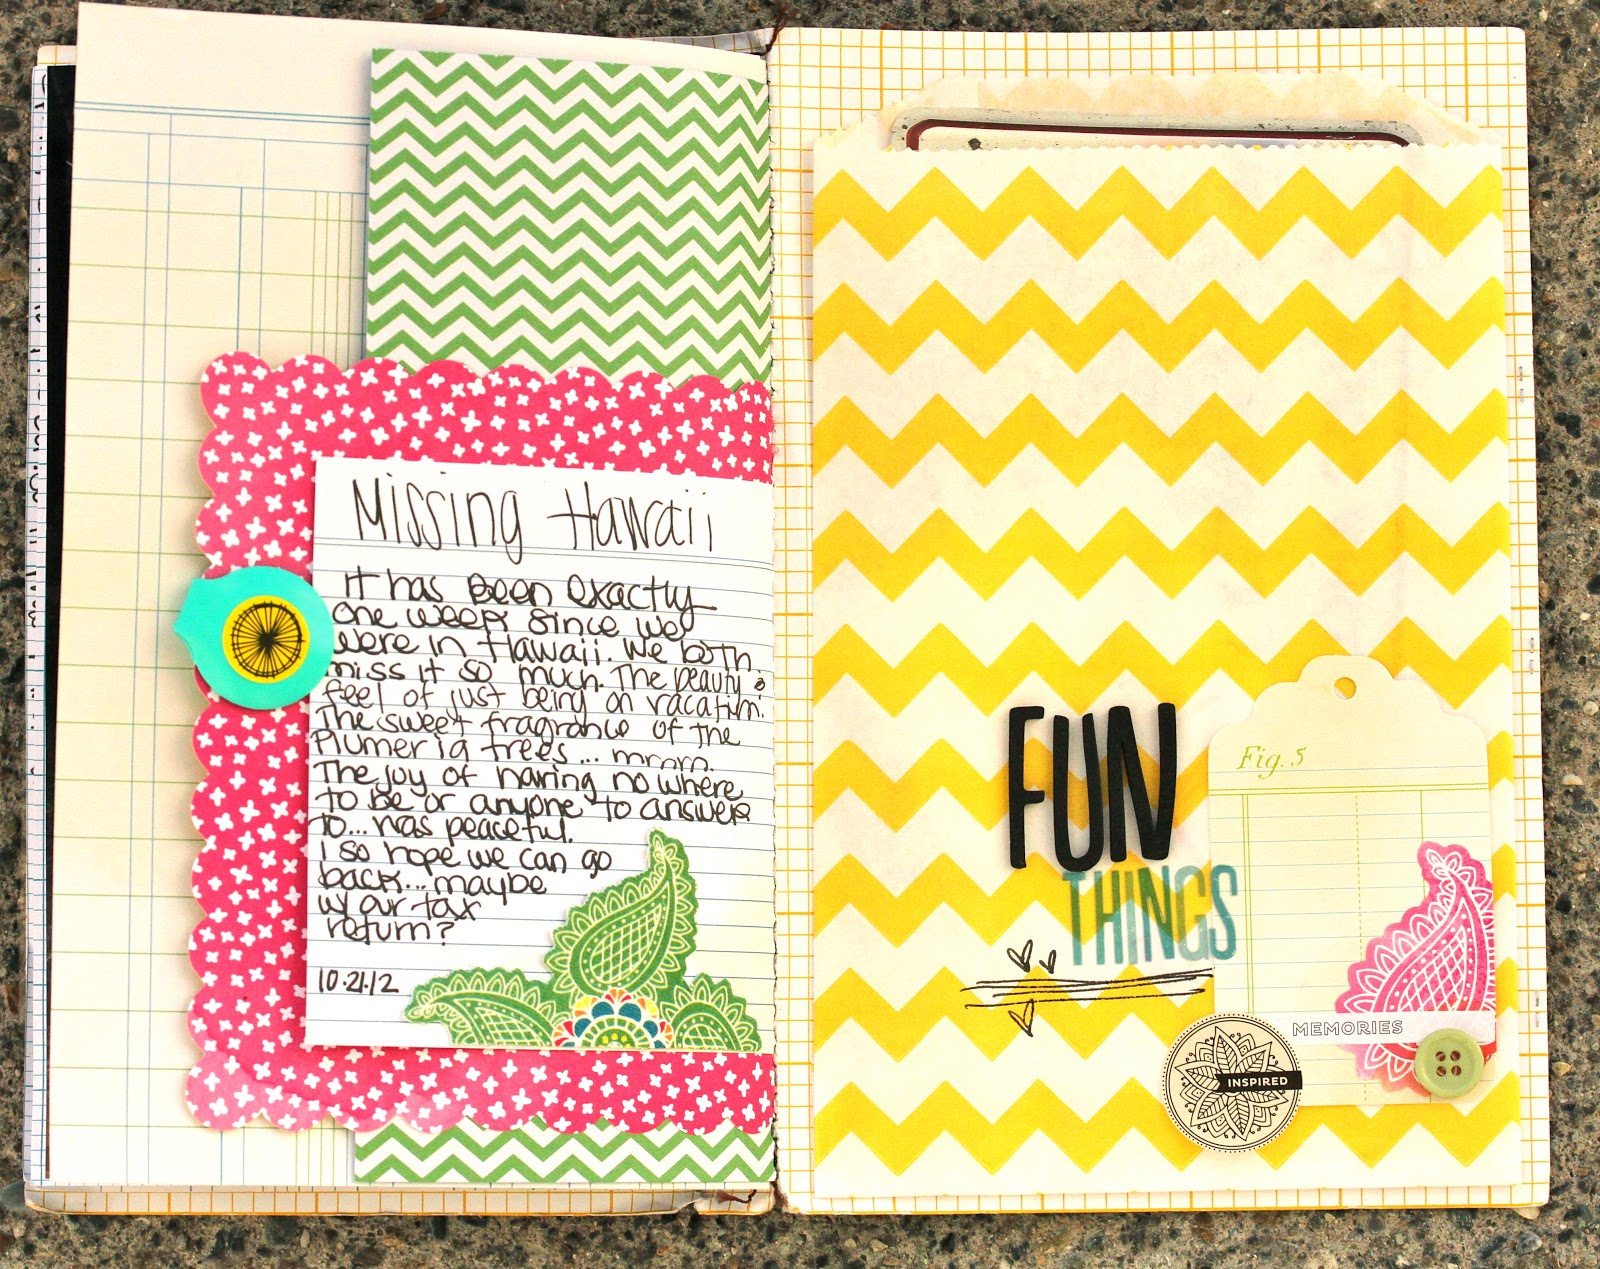 Missing Hawaii
it has been exactly
one week since we
were in Hawaii. We both
miss it so much. The beauty &
feel of just being on vacation.
The sweet fragrance of the
Plumeria trees... mmm.
The joy of having no where
to be or anyone to answer
to... was peaceful.
I so hope we can go
back... maybe
w/ our tax
return?
10.21.12
FUN
THINGS
Fig. 5
MEMORIES
INSPIRED